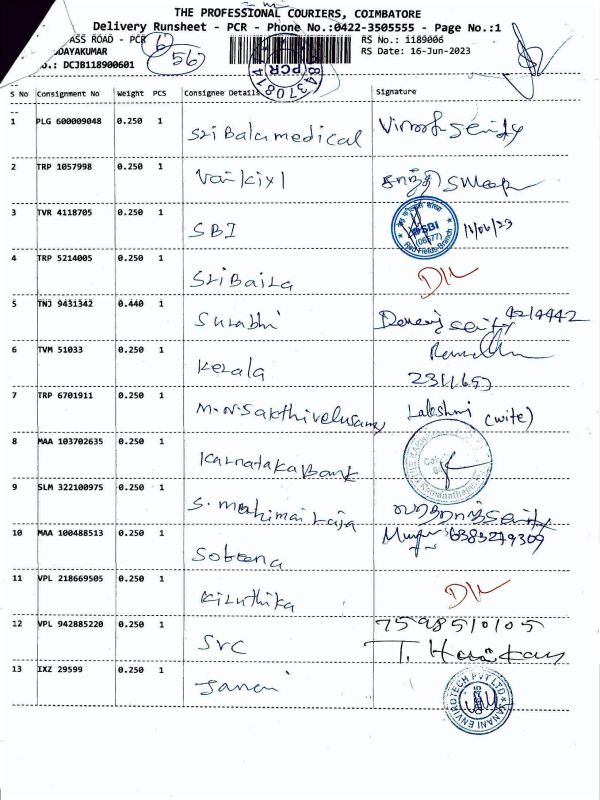 THE PROFESSIONAL COURIERS, COIMBATORE
Delivery Runsheet - PCR - Phone No.:0422-3505555 - Page No.:1
ASS ROAD - PCR 6 RS No.: 1189006
DAYAKUMAR 56 RS Date: 16-Jun-2023
.: DCJB118900601
PCR
S No Consignment No Weight PCS Consignee Details Signature
1 PLG 600009048 0.250 1 Sri Balamedical
2 TRP 1057998 0.250 1
3 TVR 4118705 0.250 1 SBI SBI (06577) Red Fields Branch 16/06/23
4 TRP 5214005 0.250 1 DL
5 TNJ 9431342 0.440 1 Surabhi
6 TVM 51033 0.250 1 Kerala
7 TRP 6701911 0.250 1 M.N.Sakthivelusamy Lakshmi (wife)
8 MAA 103702635 0.250 1 Karnataka Bank
9 SLM 322100975 0.250 1 S. mahimairaja
10 MAA 100488513 0.250 1 6383279309
11 VPL 218669505 0.250 1 Kiruthika DL
12 VPL 942885220 0.250 1 SVC 7598510105
13 IXZ 29599 0.250 1 Janani JANANI ENVIROTECH PVT LTD